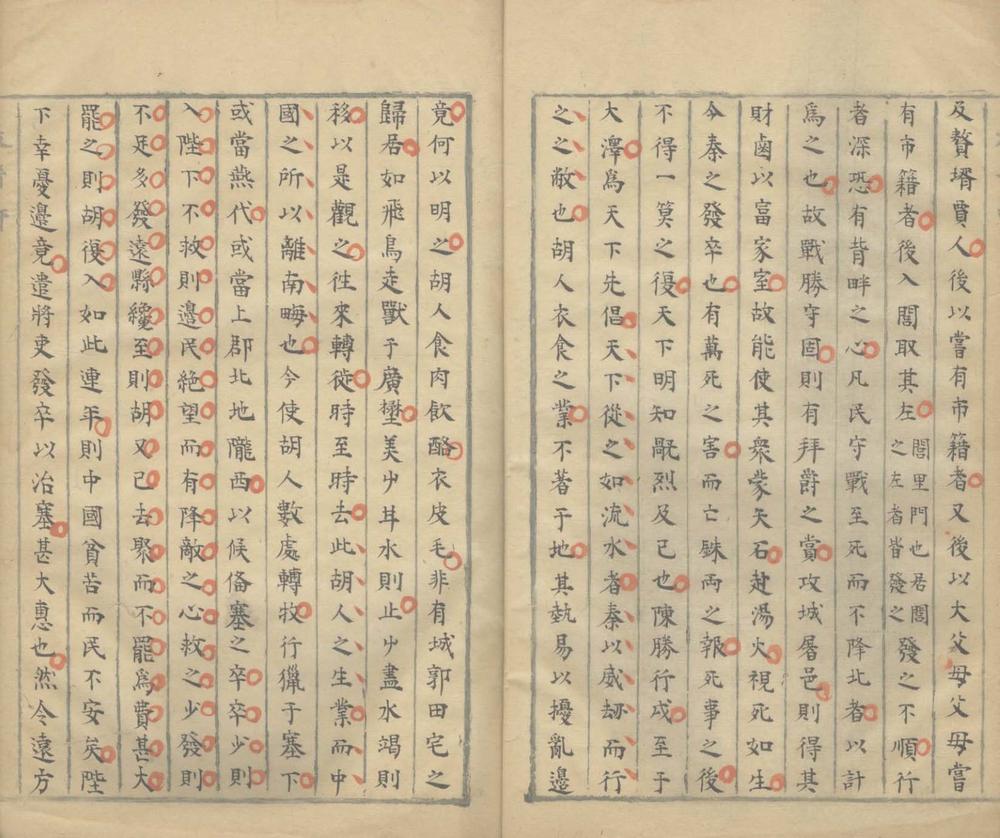 及贅壻賈人後以嘗有市籍者又後以大父母父母嘗
有市籍者後入閭取其左閭里門也居閭之左者皆發之發之不順行
者深恐有背畔之心凡民守戰至死而不降北者以計
爲之也故戰勝守固則有拜爵之賞攻城屠邑則得其
財鹵以富家室故能使其衆蒙天石赴湯火視死如生
今秦之發卒也有萬死之害而亡銖兩之報死事之後
不得一筭之復天下明知旤烈及已也陳勝行戍至于
大澤爲天下先倡天下從之如流水者秦以威刼而行
之之敝也胡人衣食之業不著于地其埶易以擾亂邊
竟何以明之胡人食肉飮酪衣皮毛非有城郭田宅之
歸居如飛鳥走獸于廣壄美屮甘水則止屮盡水竭則
移以是觀之徃來轉徙時至時去此胡人之生業而中
國之所以離南畮也今使胡人數處轉牧行獵于塞下
或當燕代或當上郡北地隴西以候俻塞之卒卒少則
入陛下不救則邊民絶望而有降敵之心救之少發則
不足多發遠縣纔至則胡又已去聚而不罷爲費甚大
罷之則胡復入如此連年則中國貧苦而民不安矣陛
下幸憂邊竟遣將吏發卒以治塞甚大惠也然令遠方